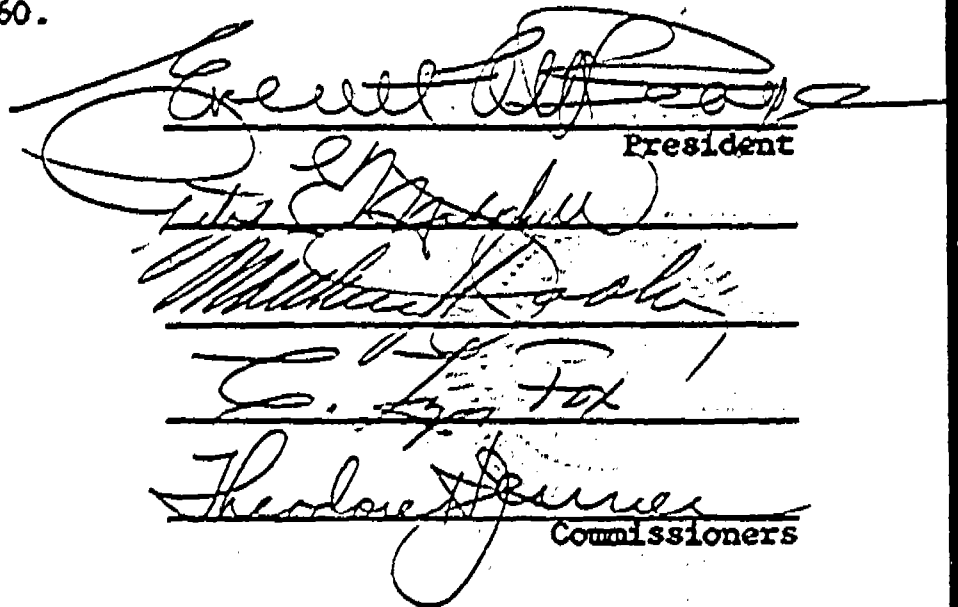 60.
Everett C. McKeage
President
Peter E. Mitchell
Matthew J. Dooley
C. Lyn Fox
Theodore H. Jenner
Commissioners